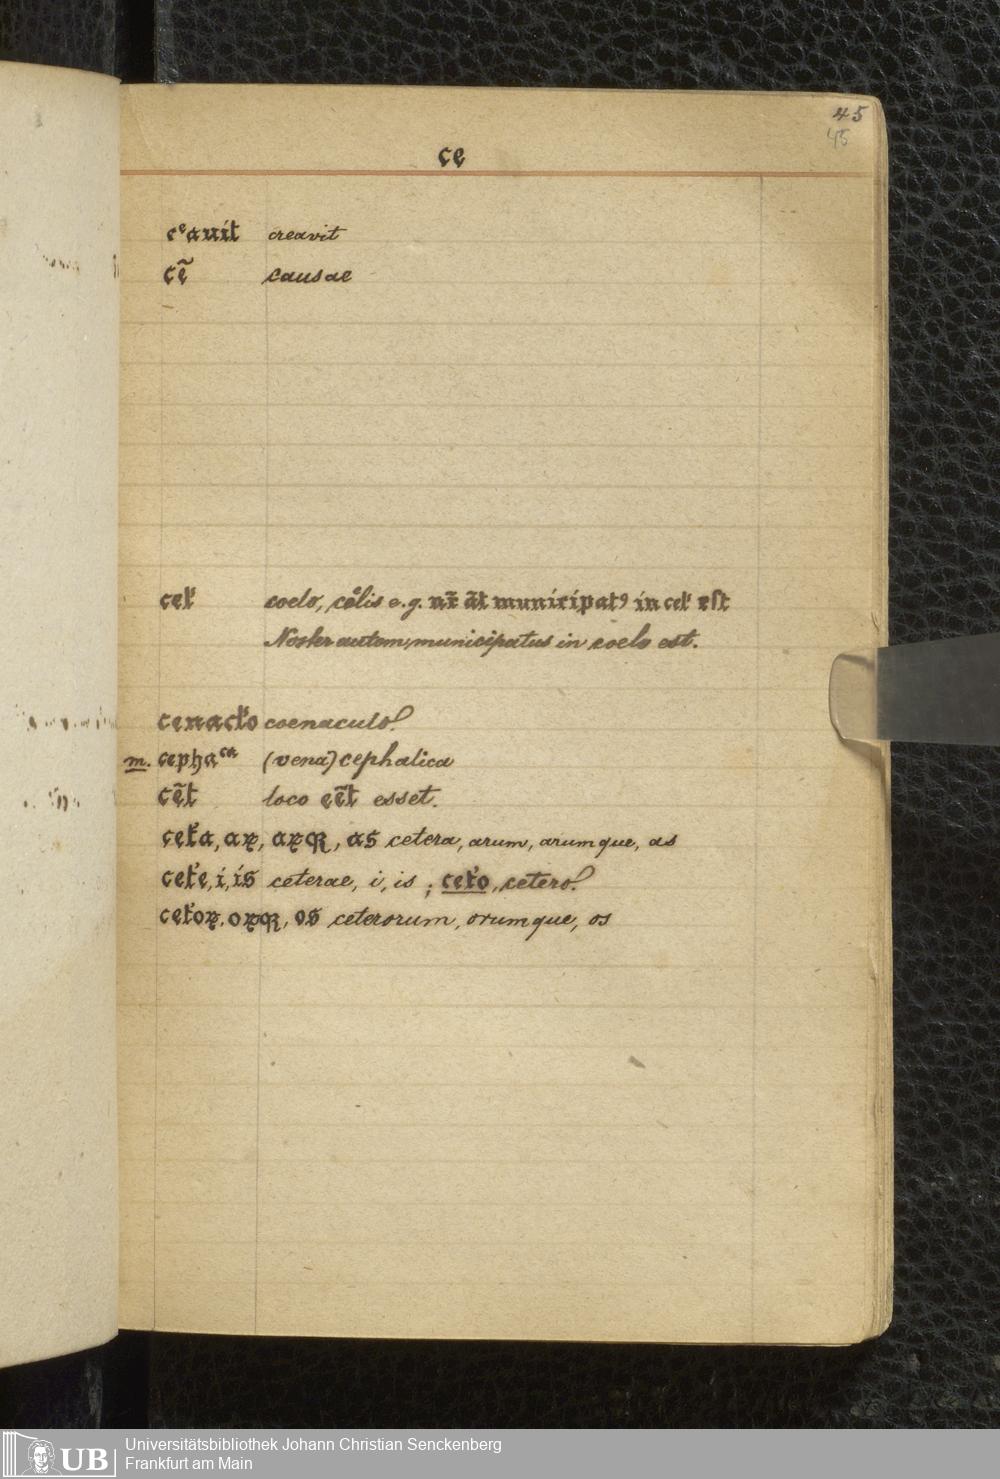 45
45
ce
cᵉauit creavit
cẽ causae
cel̓ coelo, cœlis e.g. nr̃ ãt municipatꝰ in cel̓ eſt
Noster autem municipatus in coelo est.
cenacl̓o coenaculo!
m. cephaᶜᵃ (vena) cephalica
cẽt loco eẽt esset.
cet̓a, aꝝ, aꝝqꝫ, as cetera, arum, arumque, as
cet̓e, i, is ceterae, i, is ; cet̓o, cetero!
cet̓oꝝ, oꝝqꝫ, os ceterorum, orumque, os
UB Universitätsbibliothek Johann Christian Senckenberg
Frankfurt am Main